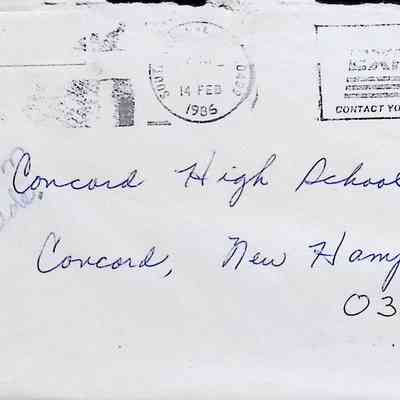 14 FEB
1986
CONTACT YO
Concord High School
Concord, New Hamp
03